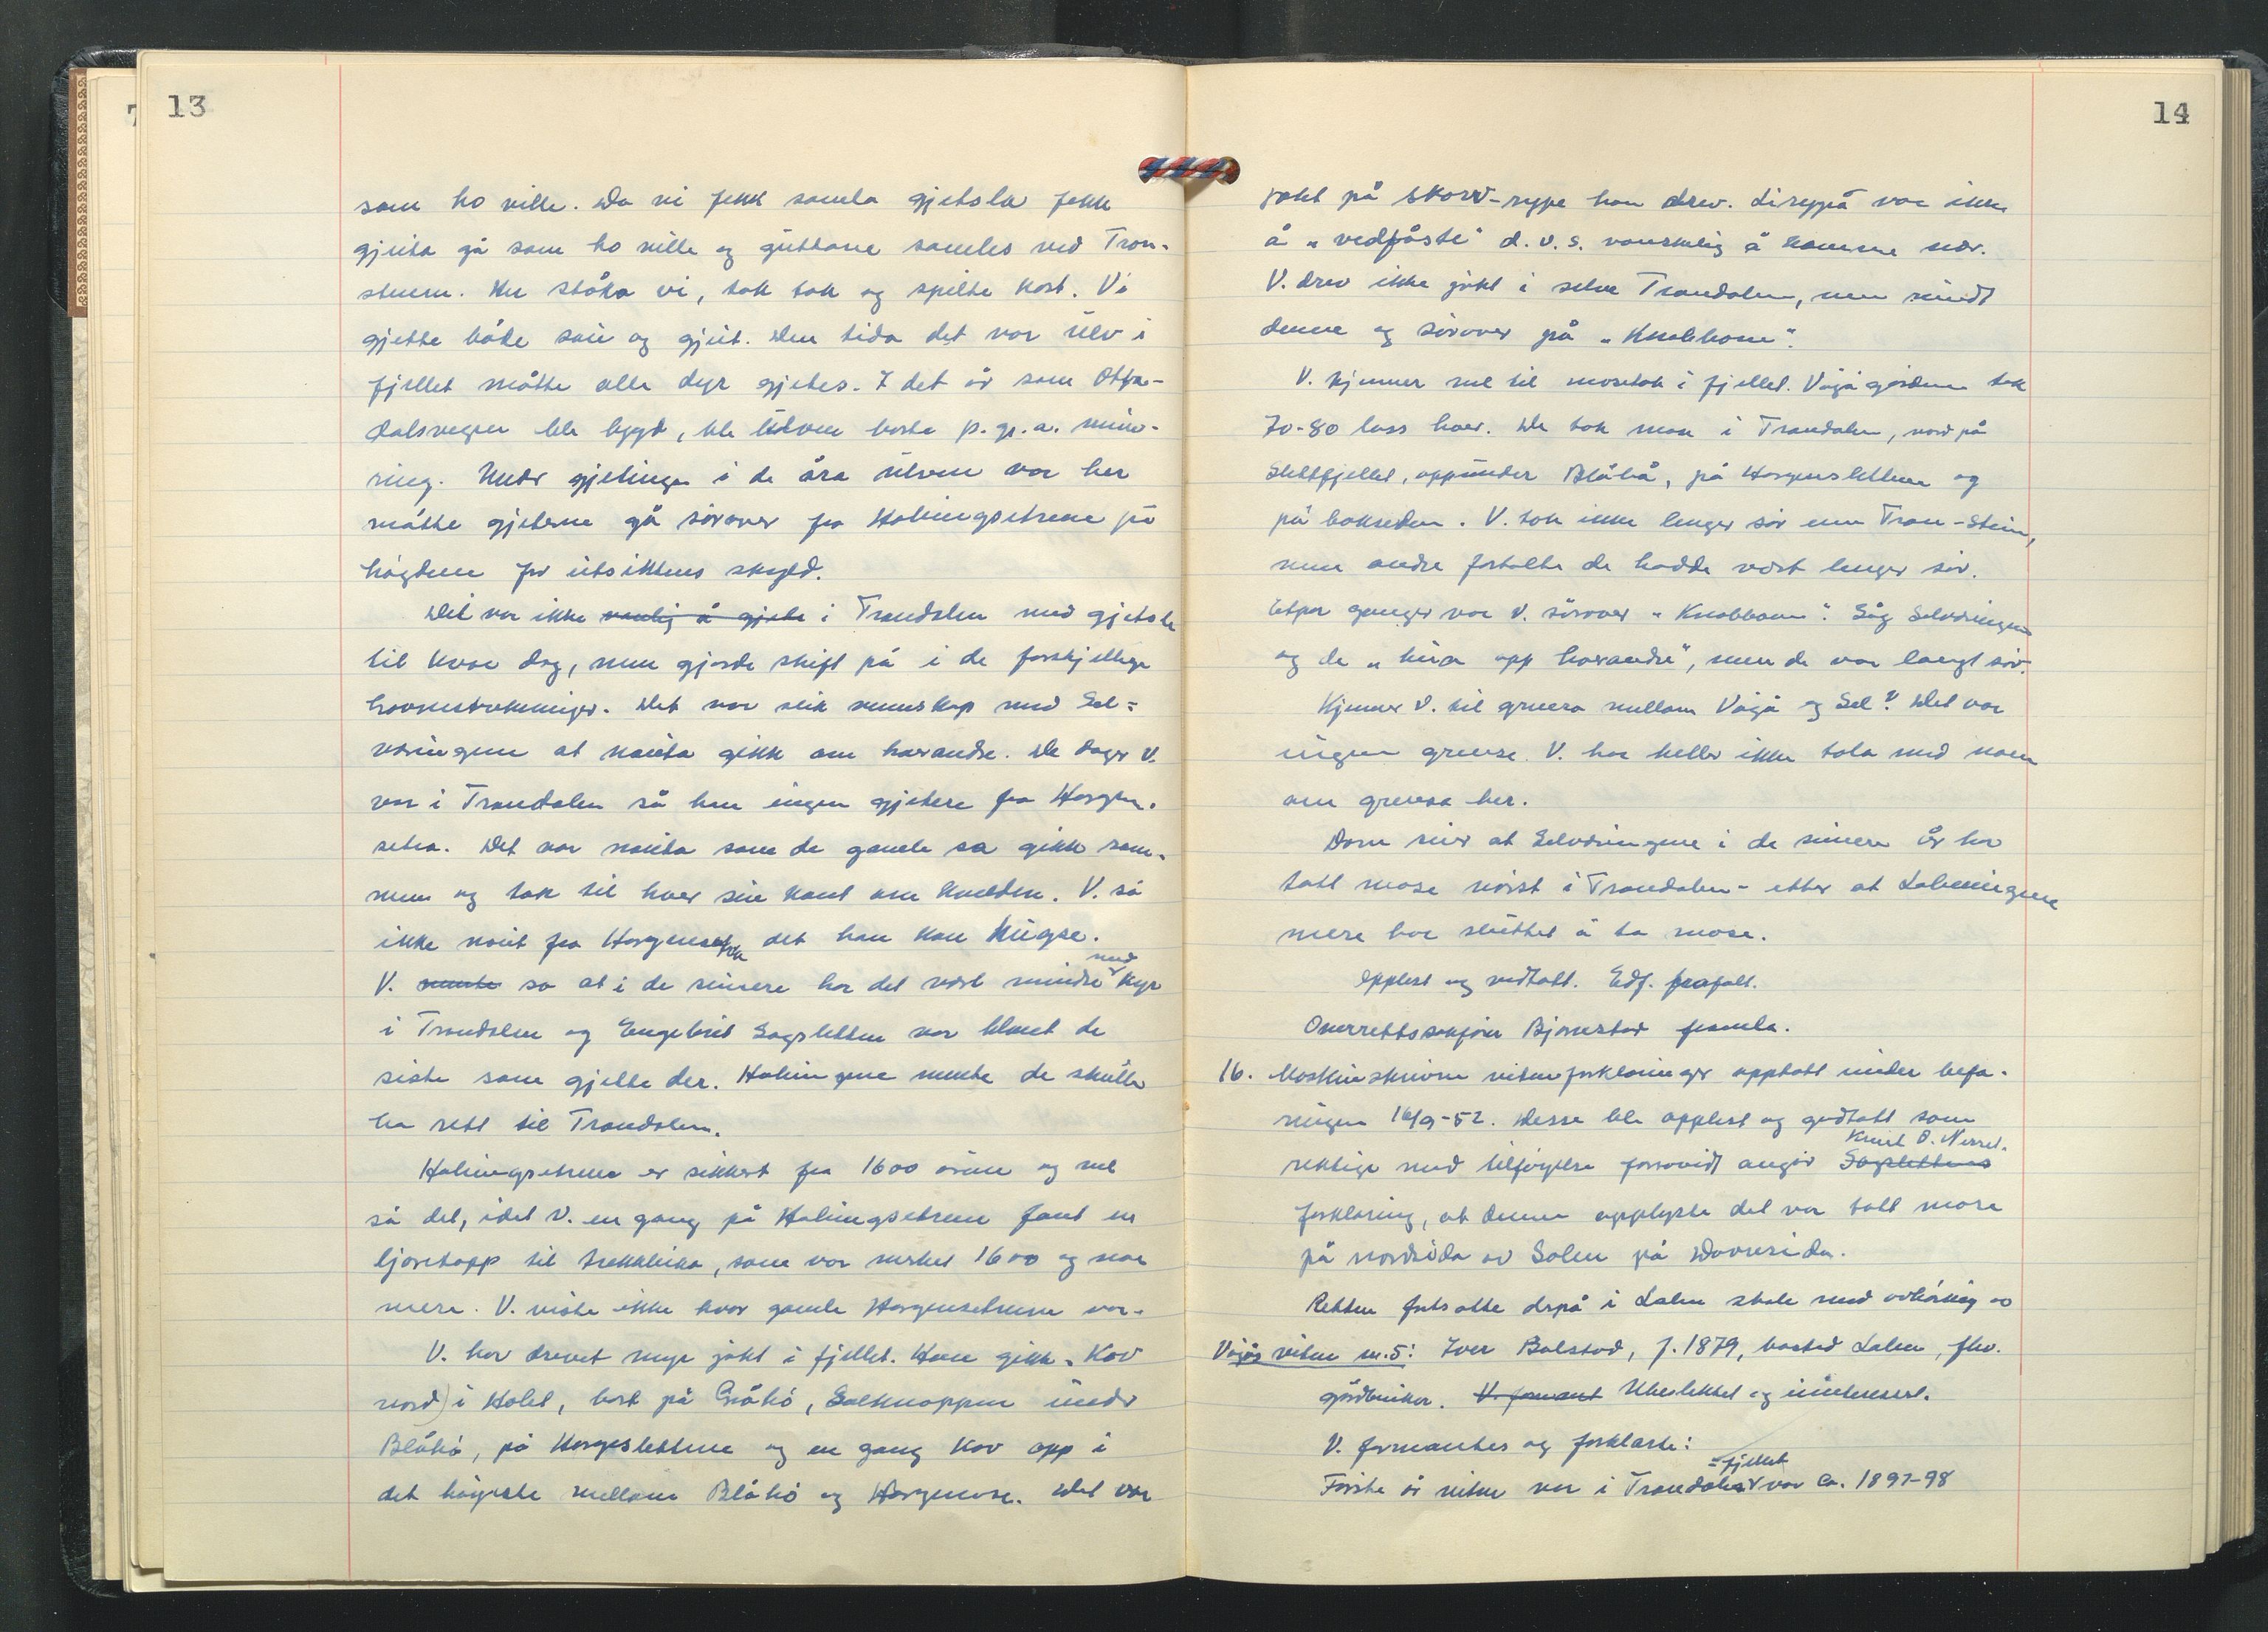 13
som ho ville. Da vi fekk samla gjetsla fekk
gjeita gå som ho ville og guttane samles ved Tron-
steinen. Her ståka vi, tok tak og spilte kort. Vi
gjette både sau og gjeit. Den tida det var ulv i
fjellet måtte alle dyr gjetes. I det år som Otta-
dalsvegen ble bygd, ble ulven borte p.gr.a. mine-
ring. Under gjetinga i de åra ulven var her
måtte gjeterne gå sørover fra Holungsetrene på
høgdene for utsiktens skyld.
Det var ikke vanlig å gjete i Trondalen med gjetsla
til kvar dag, men gjorde skift på i de forskjellige
havnestrekninger. Det var slik vennskap med Sel-
væringene at nauta gikk om hverandre. De dager V.
var i Trondalen så han ingen gjetere fra Horgen-
setra. Det var nauta som de gamle sa gikk sam-
men og tok til hver sin kant om kvelden. V. så
ikke naut fra Horgensetra det han kan hugse.
V. mente sa at i de seinere har det vært mindre med kyr
i Trondalen og Engebret Sagsletten var blant de
siste som gjette der. Holungene mente de skulle
ha rett til Trondalen.
Holungsetrene er sikkert fra 1600 årene og vel
så det, idet V. en gang på Holungsetrene fant en
ljoretopp til trekkluka, som var merket 1600 og noe
mere. V. viste ikke hvor gamle Horgensetrene var.
V. har drevet mye jakt i fjellet. Han gikk „Kav
nord) i Holet, bort på Gråhö, Solknappen under
Blåhö, på Horgeslettene og en gang kav opp i
det høgeste mellom Blåhö og Horgenose. Det var
14
jakt på skarv-rype han drev. Lirypå var ikke
å „vedfåste" d.v.s. vanskelig å komme nær.
V. drev ikke jakt i selve Trondalen, men rundt
denne og sørover på „Knobbane".
V. kjenner vel til mosetak i fjellet. Vågågardene tok
70-80 lass hver. De tok mose i Trondalen, nord på
Slettfjellet, oppunder Blåhå, på Horgenslettene og
på baksiden. V. tok ikke lenger sør enn Tron-Stein,
men andre fortalte de hadde vært lenger sør.
Etpar ganger var V. sörover „Knobbane". Såg Selværingene
og de „hua opp hverandre", men de var langt sør.
Kjenner V. til grensa mellom Vågå og Sel? Det var
ingen grense. V. har heller ikke tala med noen
om grensa her.
Dorn sier at Selværingene i de seinere år har
tatt mose nørst i Trondalen - etter at Lalmingene
mere har sluttet å ta mose.
Opplest og vedtatt. Edf. frafalt.
Overrettssakfører Bjørnstad framla.
16. Maskinskrevne vitneforklaringer opptatt under befa-
ringen 16/9-52. Desse ble opplest og godtatt som
riktige med tilføyelse forsovidt angår Sagslettens Knut O. Nerset.
forklaring, at denne opplyste det var tatt mose
på nordsida av Solen på Dovresida.
Retten fortsatte derpå i Lalm skole med avhøring av
Vågås vitne nr. 5: Iver Bolstad, f. 1879, bosted Lalm, fhv.
gårdbruker. V. formant Ubeslektet og uinteressert.
V. formantes og forklarte:
Første år vitne var i Trondalen -fjellet var ca. 1897-98